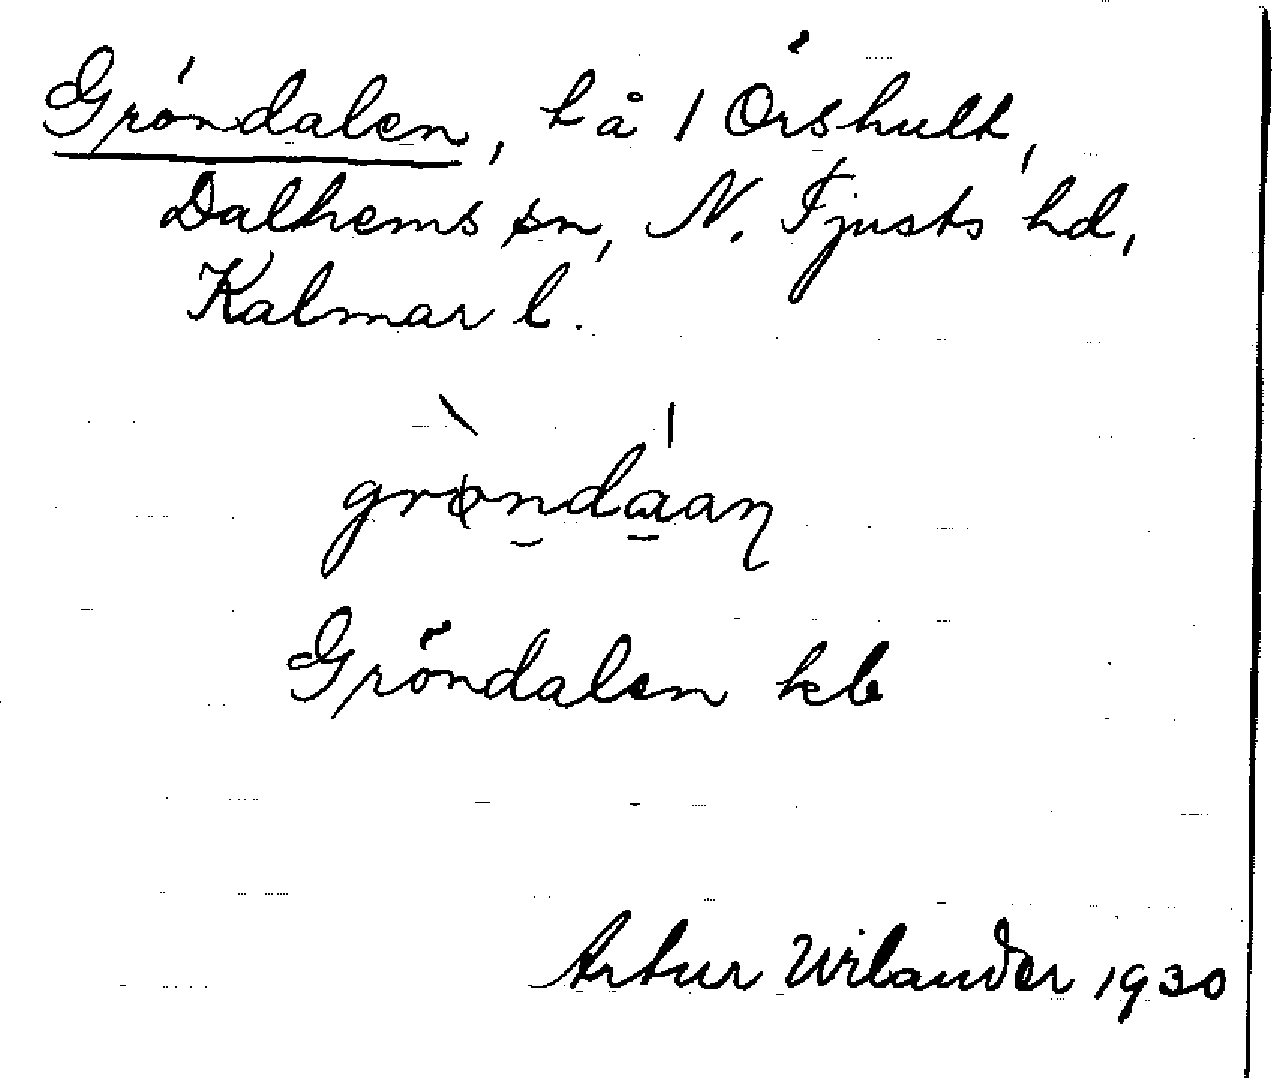 Gröndalen, hå / Örshult,
Dalhems sn, N. Tjusts hd,
Kalmar l.
grǿndaan
Gröndalen kb
Artur Wilander 1930